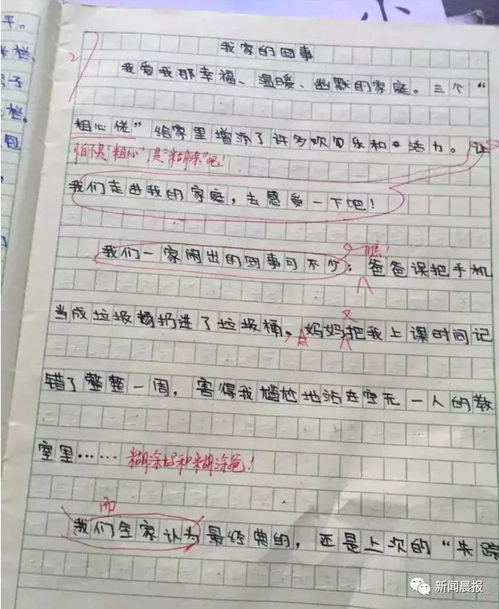 我家的囧事
我爱我那幸福、温暖、幽默的家庭。三个“
粗心佬”给家里增添了许多欢乐和活力。让
怕不是“粗心”是“糊涂”吧！
我们走进我的家庭，去感受一下吧！
瞧！
我们一家闹出的囧事可不少：爸爸误把手机
又
当成垃圾扔进了垃圾桶，妈妈把我上课时间记
错了整整一周，害得我尴尬地站在空无一人的教
室里……糊涂妈和糊涂爸！
而
我们全家认为最经典的，还是上次的“失踪
新闻晨报